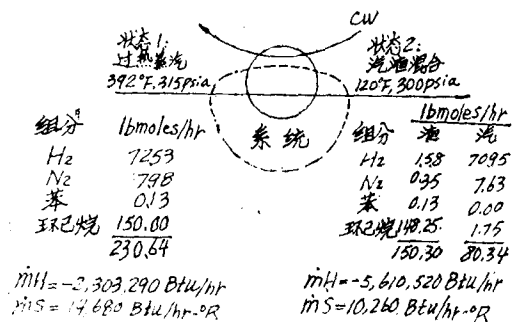 CW
状态1:
过热蒸汽
392°F, 315psia
状态2:
汽油混合
120°F, 300psia
系统
组分 lbmoles/hr
H₂ 72.53
N₂ 7.98
苯 0.13
环己烷 150.00
230.64
ṁH=-2,303,290 Btu/hr
ṁS=14,680 Btu/hr-°R
lbmoles/hr
组分 油 汽
H₂ 1.58 70.95
N₂ 0.35 7.63
苯 0.13 0.00
环己烷 148.25 1.75
150.30 80.34
ṁH=-5,610,520 Btu/hr
ṁS=10,260 Btu/hr-°R